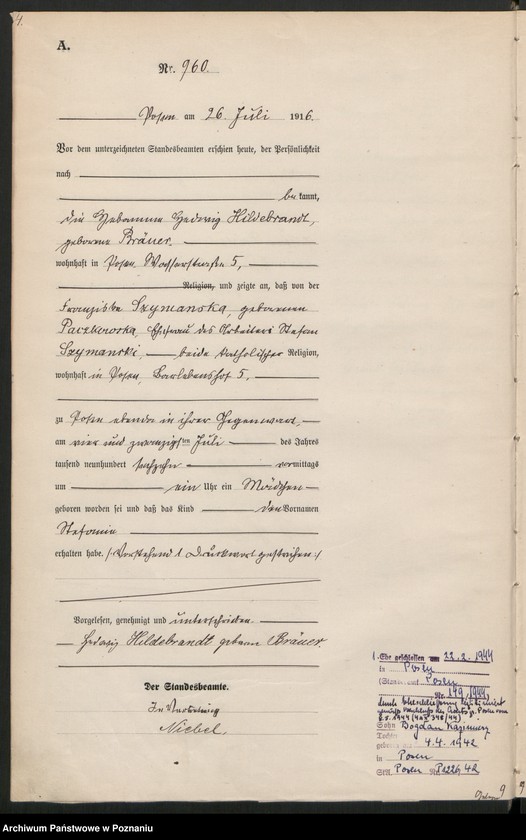 4.
A.
Nr. 960.
Posen am 26 Juli 1916.
Vor dem unterzeichneten Standesbeamten erschien heute, der Persönlichkeit
nach
be kannt,
die Hebamme Hedwig Hildebrandt,
geborene Bräuer.
wohnhaft in Posen, Wasserstraße 5,
Religion, und zeigte an, daß von der
Franziska Szymanska, geborenen
Paczkowska, Ehefrau des Arbeiters Stefan
Szymanski, beide katholischer Religion,
wohnhaft in Posen, Barlebenshof 5,
zu Posen ebenda in ihrer Gegenwart,
am vier und zwanzigsten Juli des Jahres
tausend neunhundert sechzehn vormittags
um ein Uhr ein Mädchen
geboren worden sei und daß das Kind den Vornamen
Stefanie
erhalten habe. (Vorstehend 1 Druckwort gestrichen.)
Vorgelesen, genehmigt und unterschrieben.
Hedwig Hildebrandt geborne Bräuer
Der Standesbeamte.
In Vertretung
Niebel.
1. Ehe geschlossen am 22.2.1944
in Posen
Posen
Nr. 149/1944,
Sohn Bogdan Kazimierz
Tochter
4.4.1942
in Posen
StA. Posen Nr. 1226/42
9
Archiwum Państwowe w Poznaniu